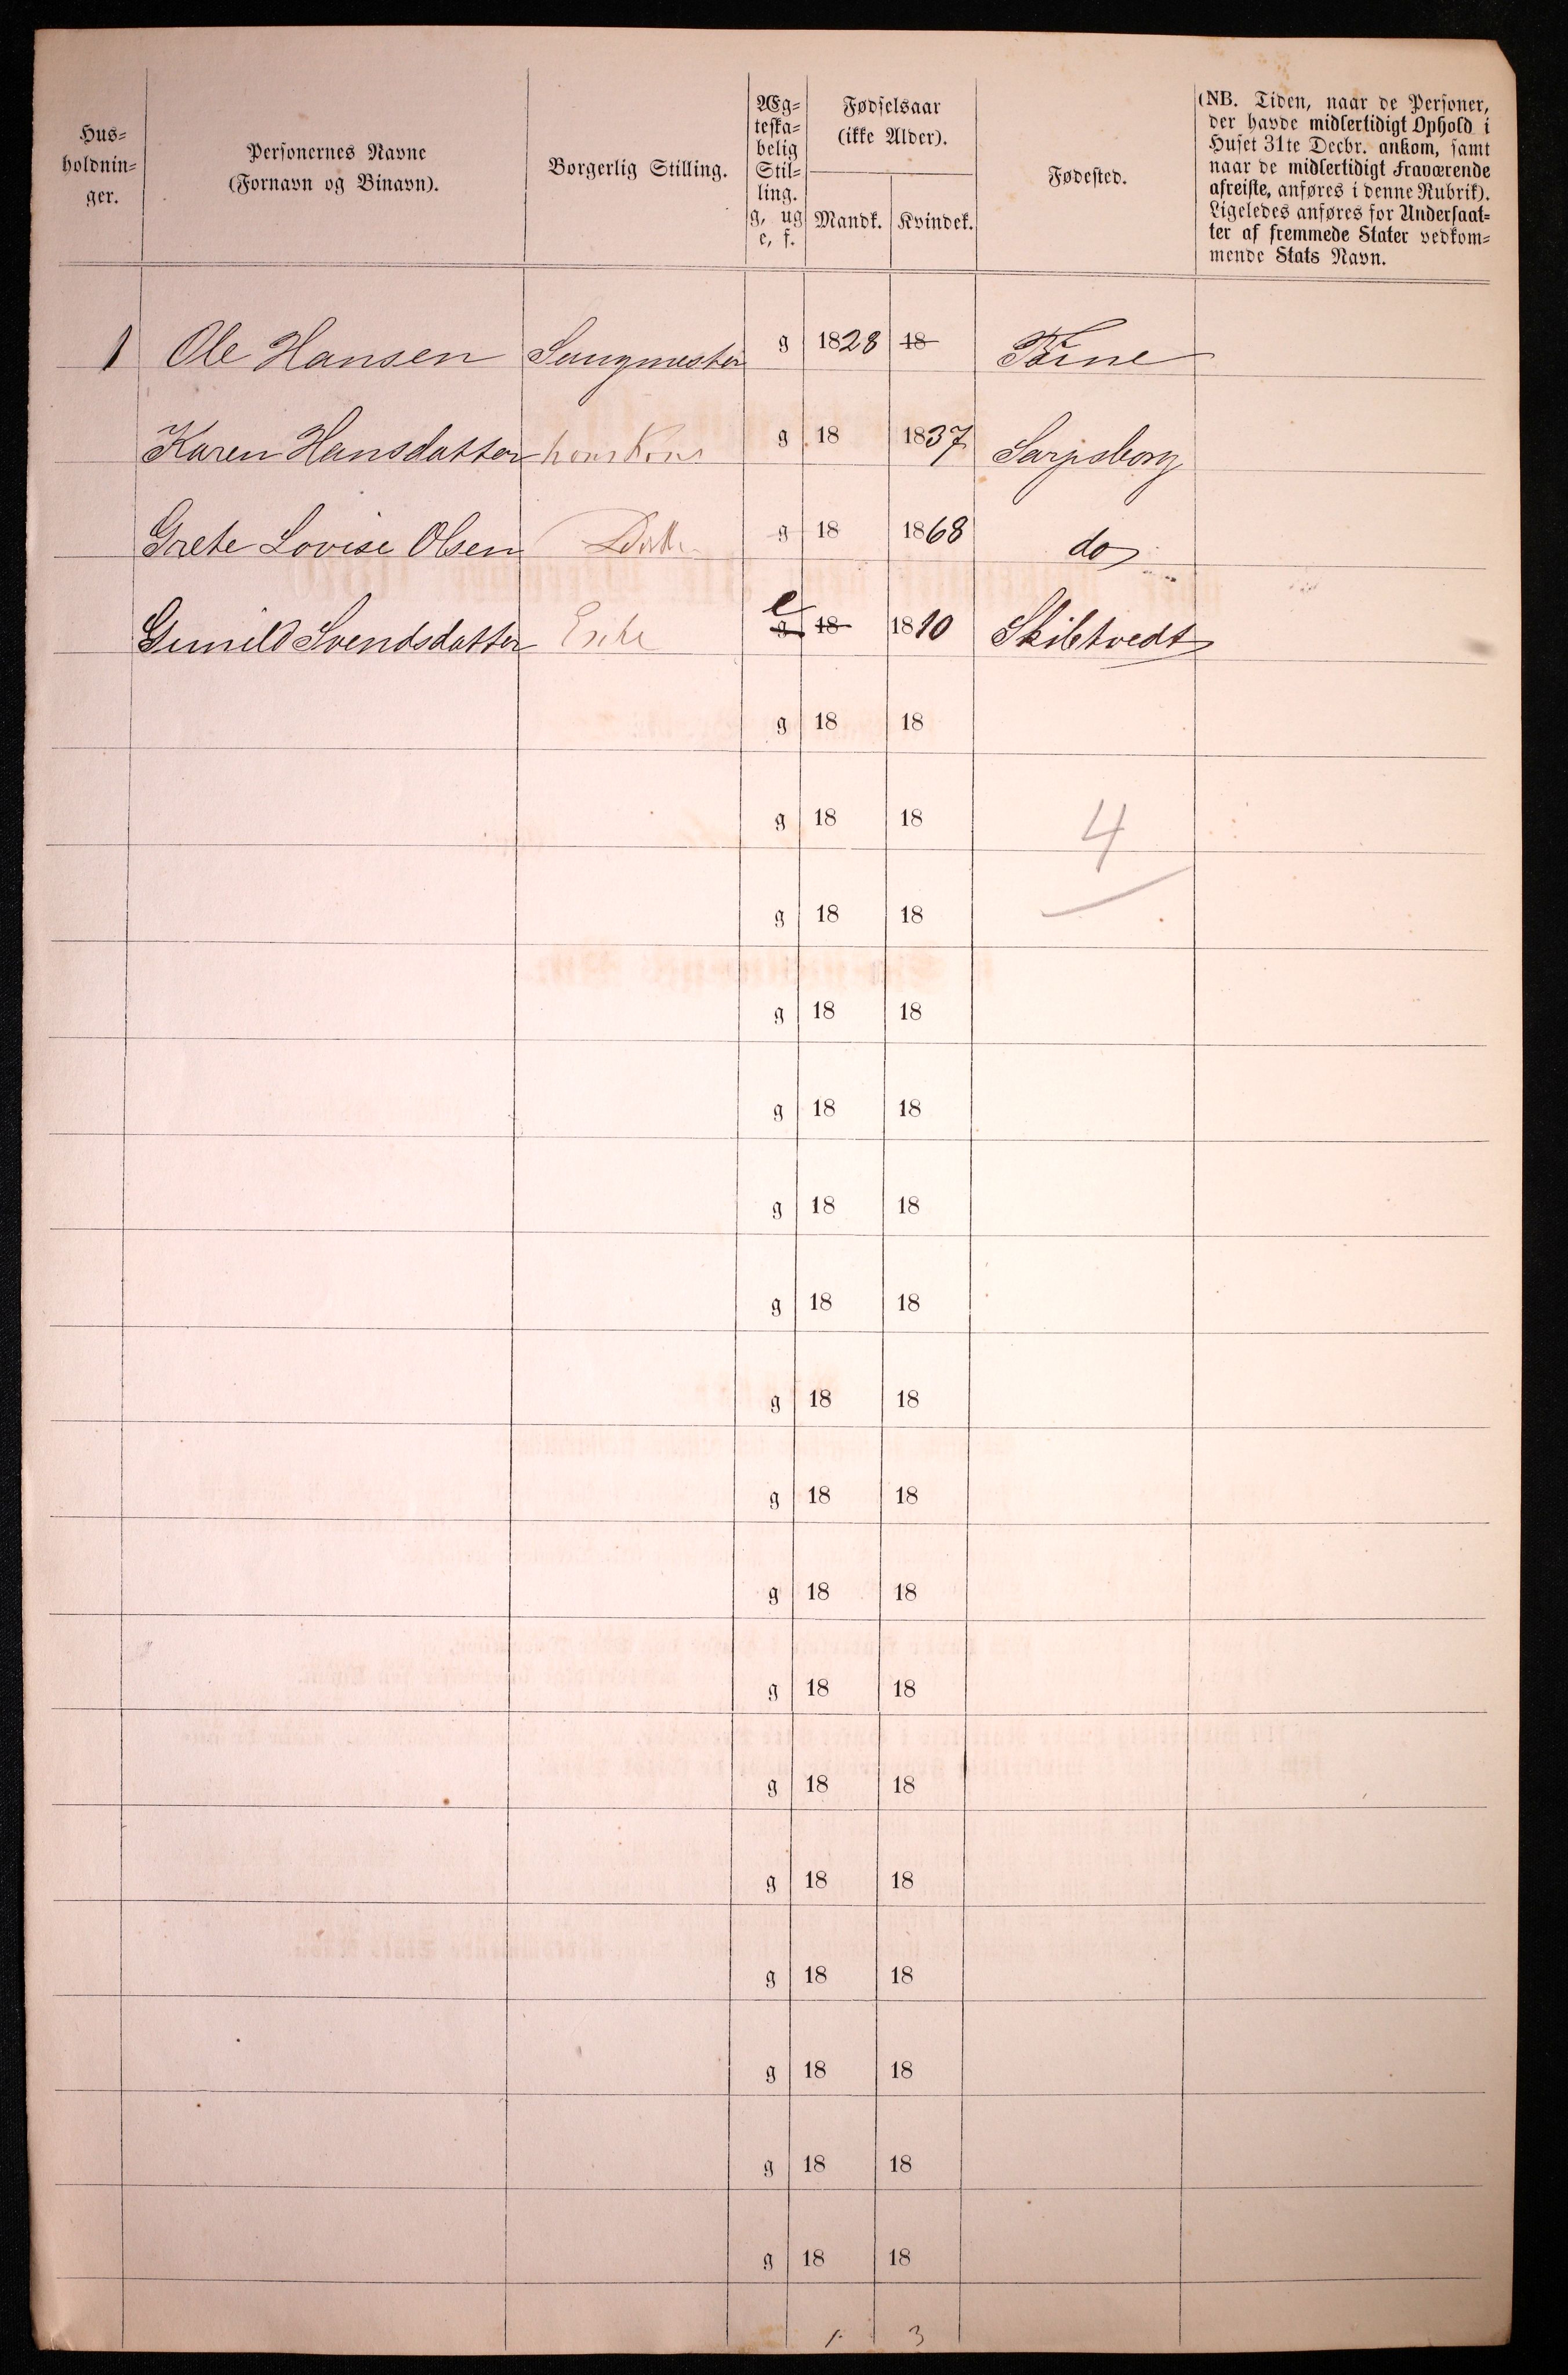 Hus=
holdnin=
ger.
Personernes Navne
(Fornavn og Binavn).
Borgerlig Stilling.
Æg=
teska=
belig
Stil=
ling.
g, ug
e, f.
Fødselsaar
(ikke Alder).
Mandk. Kvindek.
Fødested.
(NB. Tiden, naar de Personer,
der havde midlertidigt Ophold i
Huset 31te Decbr. ankom, samt
naar de midlertidigt Fraværende
afreiste, anføres i denne Rubrik).
Ligeledes anføres for Undersaat=
ter af fremmede Stater vedkom=
mende Stats Navn.
1 Ole Hansen Saugmester g 1828 18 Tune
Karen Hansdatter hans Kone g 18 1837 Sarpsborg
Grete Lovise Olsen Datter g 18 1868 do
Gunild Svendsdatter Enke e g 18 1810 Skibtvedt
g 18 18
g 18 18 4
g 18 18
g 18 18
g 18 18
g 18 18
g 18 18
g 18 18
g 18 18
g 18 18
g 18 18
g 18 18
g 18 18
g 18 18
g 18 18
g 18 18
g 18 18
1 3